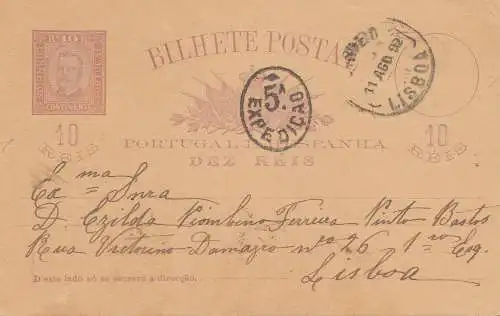 BILHETE POSTAL
RS. 10
CONTINENTE
5.A
EXPEDIÇÃO
11 AGO 92
LISBOA
10
REIS
PORTUGAL E HESPANHA
DEZ RÉIS
10
REIS
Ex.ma Snra
D. Ezilda Piombino Ferreira Pinto Bastos
Rua Victorino Damazio nº 26 1º Esq.
Lisboa
D'este lado só se escreve a direcção.